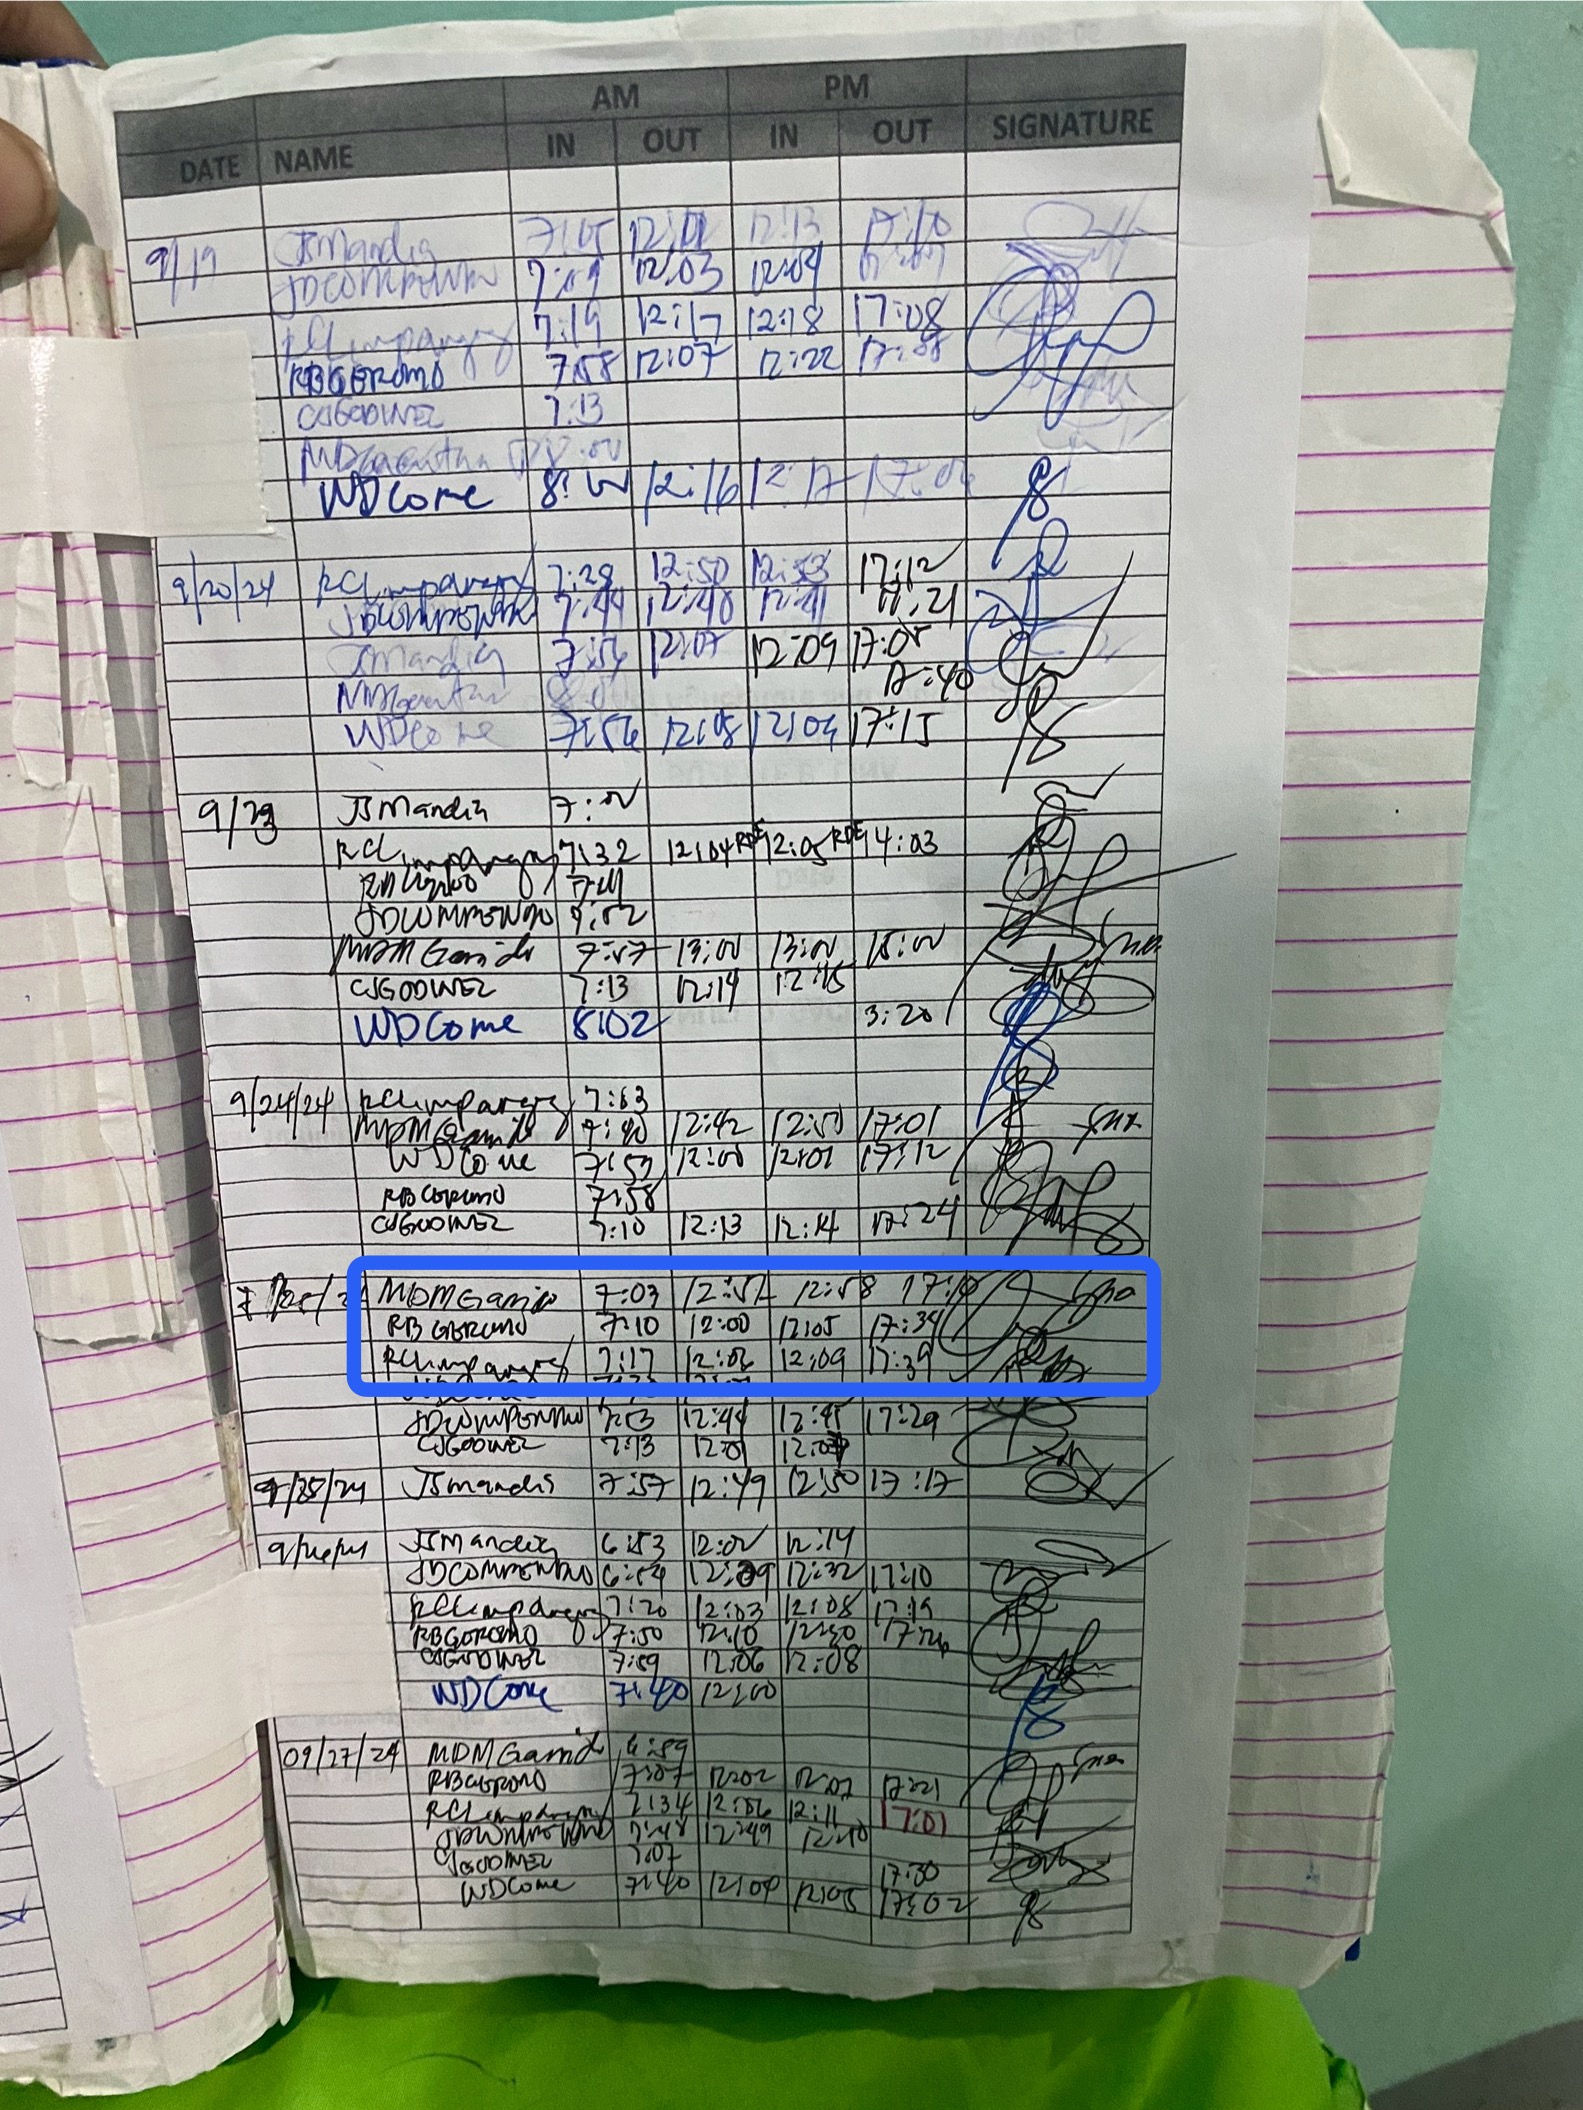 AM PM
DATE NAME IN OUT IN OUT SIGNATURE
9/19 JSMandia 7:05 12:12 12:13 17:10
JDCOMPENDIO 7:59 12:03 12:04
RCLimpangog 7:19 12:17 12:18 17:08
RBGEROMO 7:58 12:07 12:22
CJGODINEZ 7:13
WDCome 8:00 12:16 12:17
9/20/24 RCLimpangog 7:28 12:50 12:53 17:12
JDCOMPENDIO 7:44 12:40 12:41 17:21
JSMandia 7:54 12:07 12:09 17:05
17:40
WDCome 7:56 12:08 12:09 17:15
9/23 JSMandia 7:00
RCLimpangog 7:32 12:04 12:05 14:03
7:41
JDCOMPENDIO 7:52
MDMGarrido 7:57 13:00 13:00 15:00
CJGODINEZ 7:13 12:14 12:15
WDCome 8:02 3:20
9/24/24 RCLimpangog 7:13
MDMGarrido 7:40 12:42 12:50 17:01
WDCome 7:53 12:00 12:01 17:12
RBGEROMO 7:58
CJGODINEZ 7:10 12:13 12:14 17:24
MDMGarrido 7:03 12:57 12:58 17:10
RBGEROMO 7:10 12:00 12:05 17:34
RCLimpangog 7:17 12:06 12:09 17:39
JDCOMPENDIO 7:53 12:44 12:45 17:29
CJGODINEZ 7:13 12:01
9/25/24 JSMandia 7:57 12:49 12:50 17:17
9/26/24 JSMandia 6:53 12:00 12:14
JDCOMPENDIO 6:54 12:09 12:32 17:10
RCLimpangog 7:20 12:03 12:08 17:19
RBGEROMO 7:50 12:10 12:30 17:26
CJGODINEZ 7:59 12:06 12:08
WDCome 7:40 12:00
09/27/24 MDMGarrido 6:59
RBGEROMO 7:07 12:02 12:07 17:21
RCLimpangog 7:34 12:06 12:11 17:01
JDCOMPENDIO 7:48 12:49 12:50
CJGODINEZ 7:07 17:30
WDCome 7:40 12:04 12:05 17:02